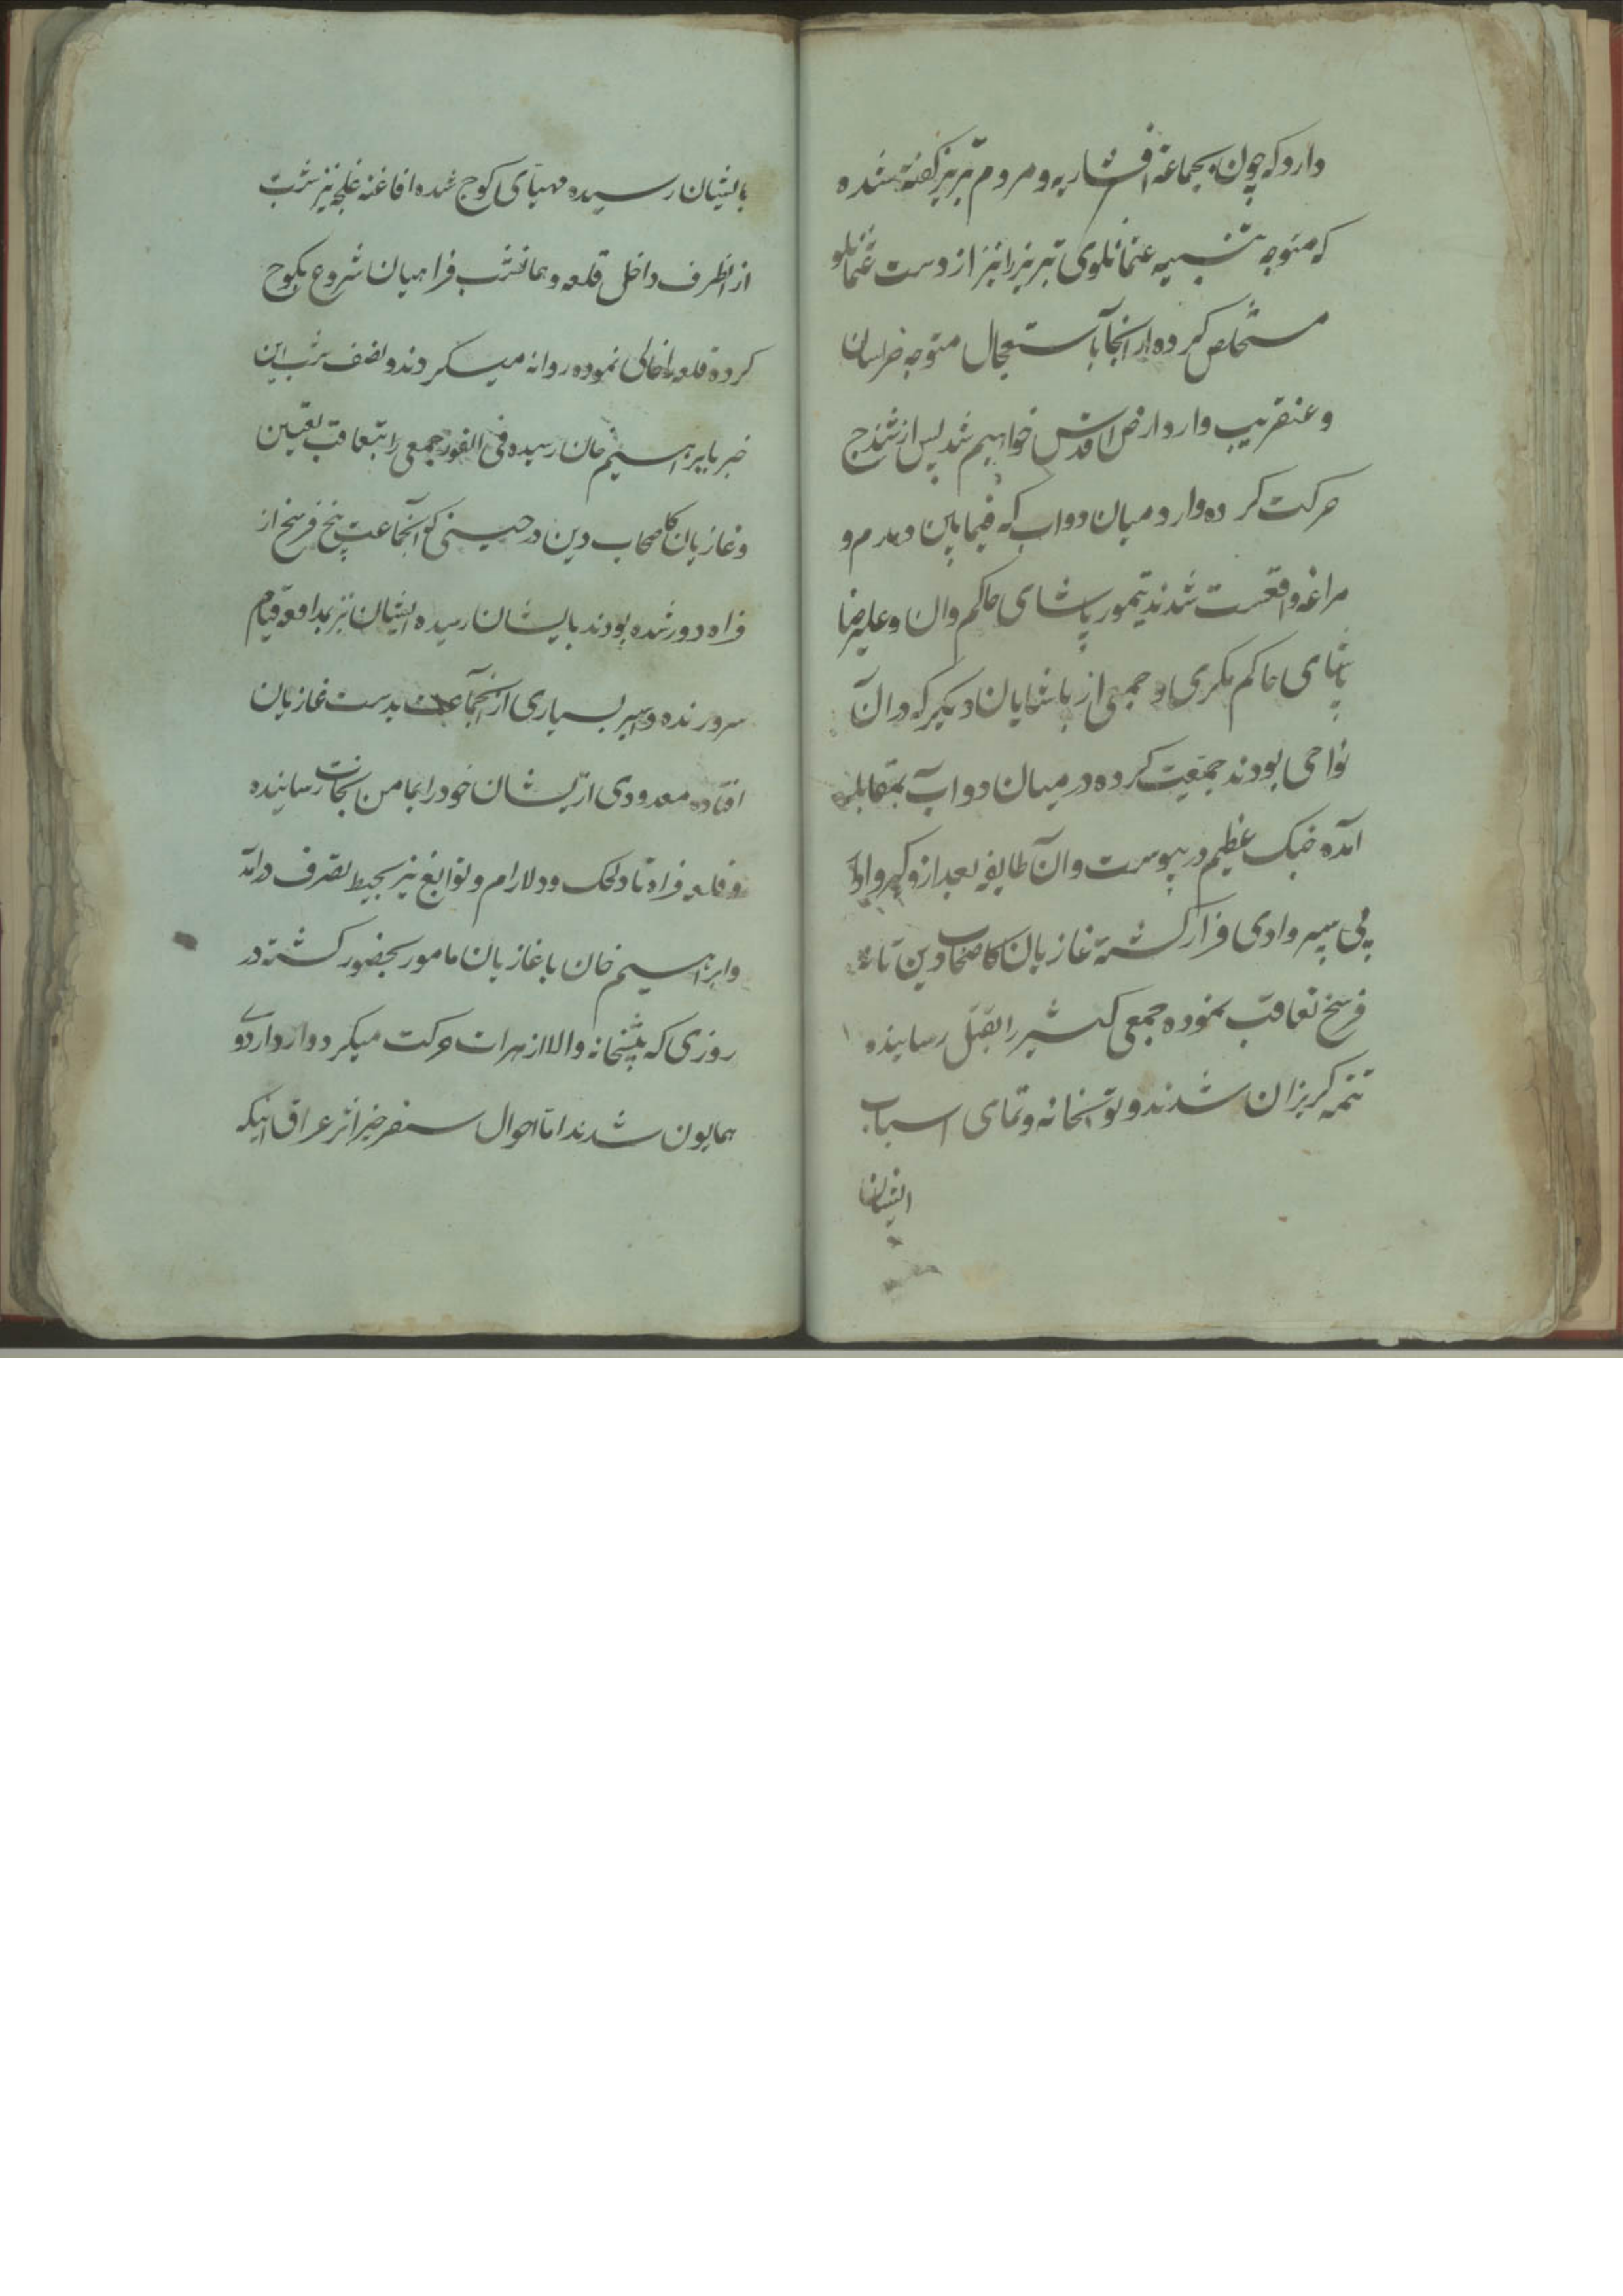 دارد که چون بجماعة افشاریه و مردم تبریز گفته شده
که متوجه تنبیه عثمانلوی تبریز را نیز از دست عثمانلو
مستخلص کرده از انجا باستعجال متوجه خراسان
و عنقریب وارد ارض اقدس خواهیم شد پس از سنندج
حرکت کرده وارد میان دواب که فیما بین و مدم و
مراغه واقعست شدند تیمور پاشای حاکم وان و علیرضا
پاشای حاکم مکری و جمعی از پاشایان دیگر که در آن
نواحی بودند جمعیت کرده در میان دوآب بمقابله
آمده جنک عظیم در پیوست و آن طایفه بعد از و
پی سپر وادی فرار کشته غازیان تا
فرسخ تعاقب نموده جمعی کثیر را بقتل رسانیده
تتمه کریزان شدند و توپخانه و تمامی اسباب
ایشان
بایشان رسیده مهیای کوچ شده افاغنه غلجه نیز شب
از انطرف داخل قلعه و همانشب فراهیان شروع بکوچ
کرده قلعه را خالی نموده روانه میکردند و نصف شب این
خبر بابراهیم خان رسیده فی الفور جمعی را بتعاقب تعیین
و غازیان در حینی که آنجماعت پنج فرسخ از
فراه دور شده بودند بایشان رسیده ایشان نیز بمدافعه قیام
سر و زنده و اسیر بسیاری از آنجماعت بدست غازیان
افتاده معدودی از ایشان خود را بمامن نجات رسانیده
و قلعه فراه تا دلحک و دلارام و توابع نیز بحیطه تصرف درآمد
و ابراهیم خان با غازیان مامور بحضور کشته در
روزی که پیشخانه والا از هرات حرکت میکرد وارد اردوی
همایون شدند اما احوال سفر خیر اثر عراق اینکه